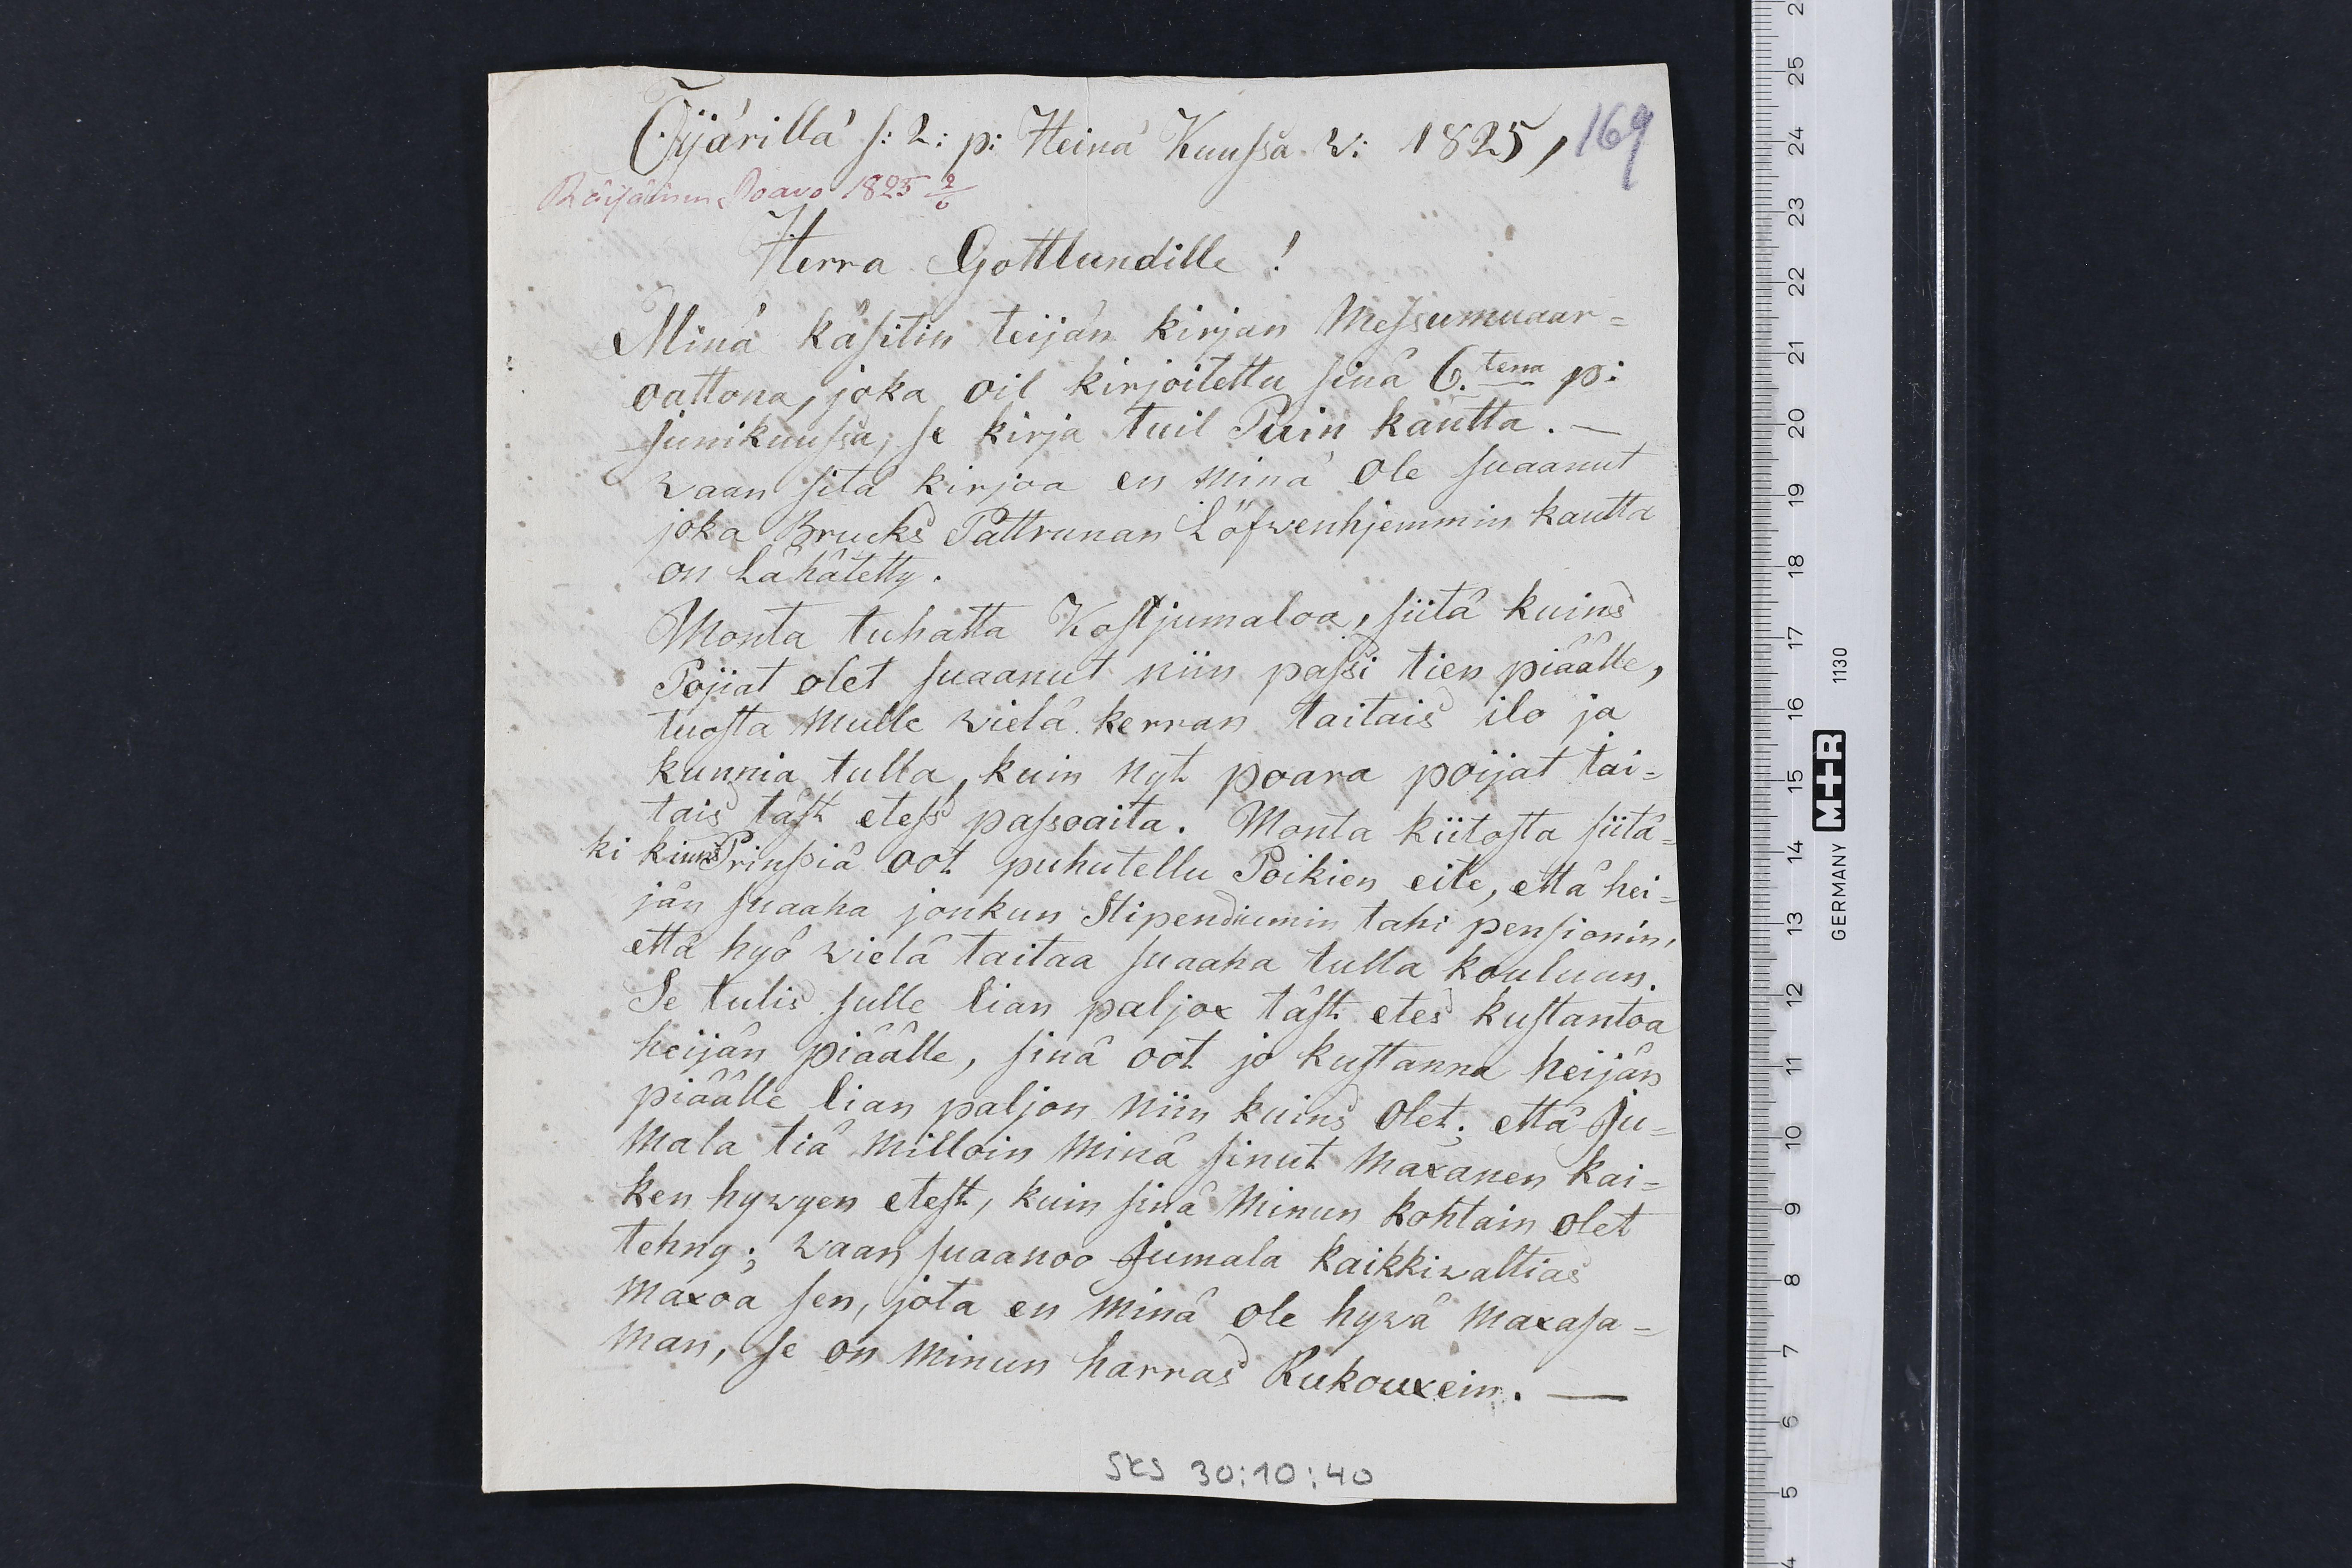 Öijärillä s: 2: p: Heinä Kuussa w: 1825,
169
Räisäinen Poavo 1825 2/6
Herra Gottlundille!
Minä käsitin teijän kirjan Messumuaar=
oattona, joka oil kirjoitettu sinä 6.tena p:
Junikuussa, se kirja tuil Puin kautta. —
waan sitä kirjoa en minä ole suaanut
joka Brucks Pattrunan Löfwenhjemmin kautta
on Lähätetty.
Monta tuhatta Kostjumaloa, siitä kuins
Pojiat olet suaanut niin passi tien piäälle,
tuosta mulle wielä kerran taitais ilo ja
kunnia tulla, kuin nyt poara poijat tai=
tais täst etess passoaita. Monta kiitosta siitä=
ki kuins Prinssiä oot puhutellu Poikien eite, että hei=
jän suaaha jonkun Stipendiumin tahi pensionin,
että hyö wielä taitaa suaaha tulla kouluun.
Se tulis sulle lian paljox täst etes kustantoa
heijän piäälle, sinä oot jo kustanna heijän
piäälle lian paljon niin kuins olet; että Ju=
mala tiä milloin minä sinut maxanen kai=
ken hywyen etest, kuin sinä minun kohtain olet
tehny; waan suaanoo Jumala kaikkiwaltias
maxoa sen, jota en minä ole hywä maxasa=
man, se on minun harras Rukouxein. —
SKS 30:10:40
25
24
23
22
21
20
19
18
17
16
15
14
13
12
11
10
9
8
7
6
5
4
GERMANY M+R 1130